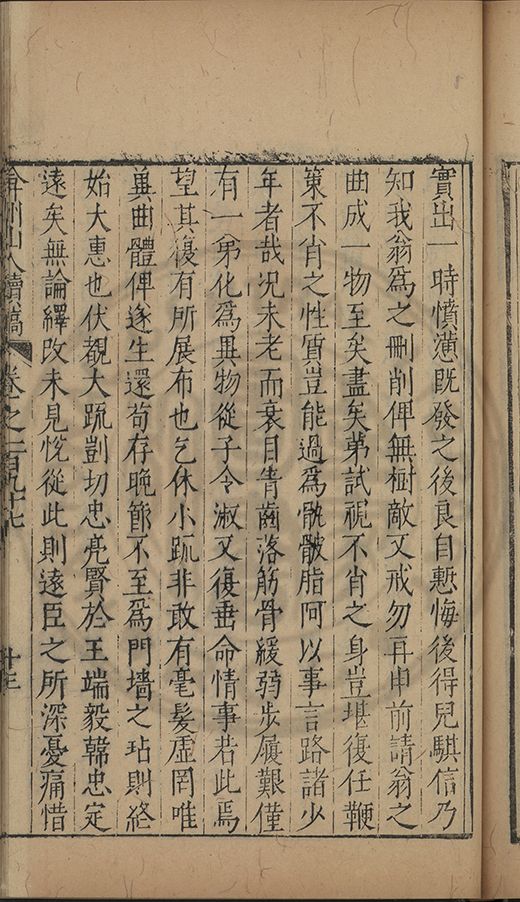 實出一時憤懣旣發之後良自慙悔後得兒騏信乃
知我翁爲之刪削俾無樹敵又戒勿再申前請翁之
曲成一物至矣盡矣第試視不肖之身豈堪復任鞭
策不肖之性質豈能過爲骫骳脂阿以事言路諸少
年者哉况未老而衰目眚齒落筋骨緩弱步履艱僅
有一弟化爲異物從子令淑又復垂命情事若此焉
望其復有所展布也乞休小疏非敢有毫髮虛罔唯
冀曲體俾遂生還苟存晚節不至爲門墻之玷則終
始大惠也伏覩大疏剴切忠亮賢於王端毅韓忠定
遠矣無論繹改未見悅從此則遠臣之所深憂痛惜
弇州山人續稿 卷之一百九十七 十三